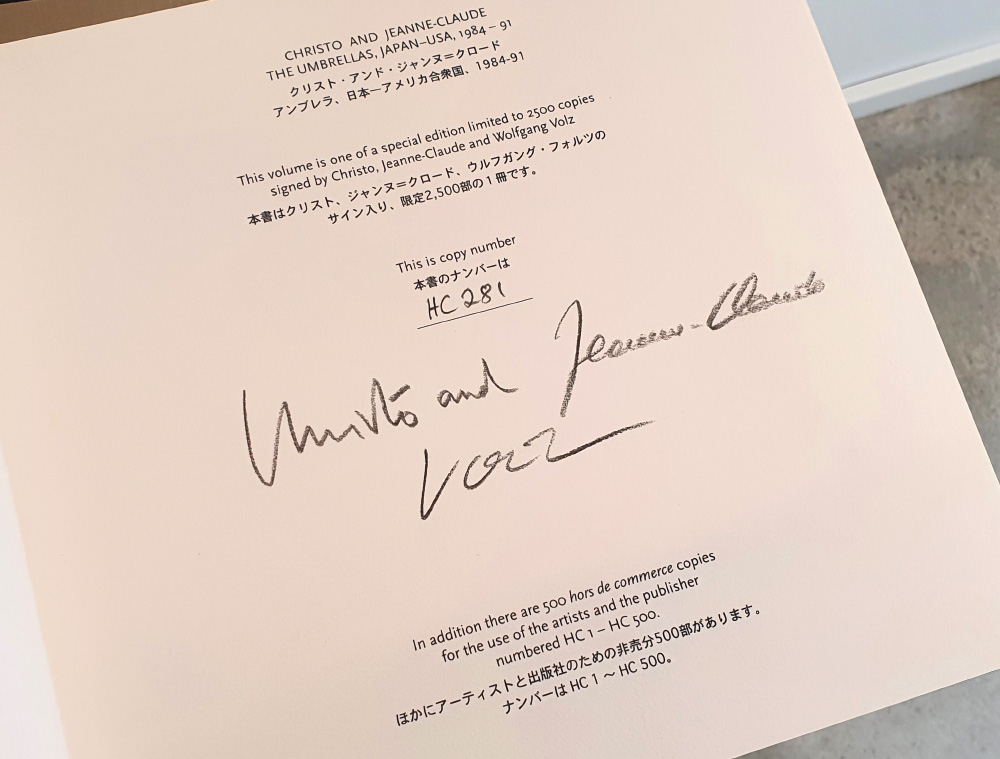 CHRISTO AND JEANNE-CLAUDE
THE UMBRELLAS, JAPAN–USA, 1984 – 91
クリスト・アンド・ジャンヌ=クロード
アンブレラ、日本―アメリカ合衆国、1984-91
This volume is one of a special edition limited to 2500 copies
signed by Christo, Jeanne-Claude and Wolfgang Volz
本書はクリスト、ジャンヌ=クロード、ウルフガング・フォルツの
サイン入り、限定2,500部の1冊です。
This is copy number
本書のナンバーは
HC 281
Christo and Jeanne-Claude
VOLZ
In addition there are 500 hors de commerce copies
for the use of the artists and the publisher
numbered HC 1 – HC 500.
ほかにアーティストと出版社のための非売分500部があります。
ナンバーは HC 1 〜 HC 500。